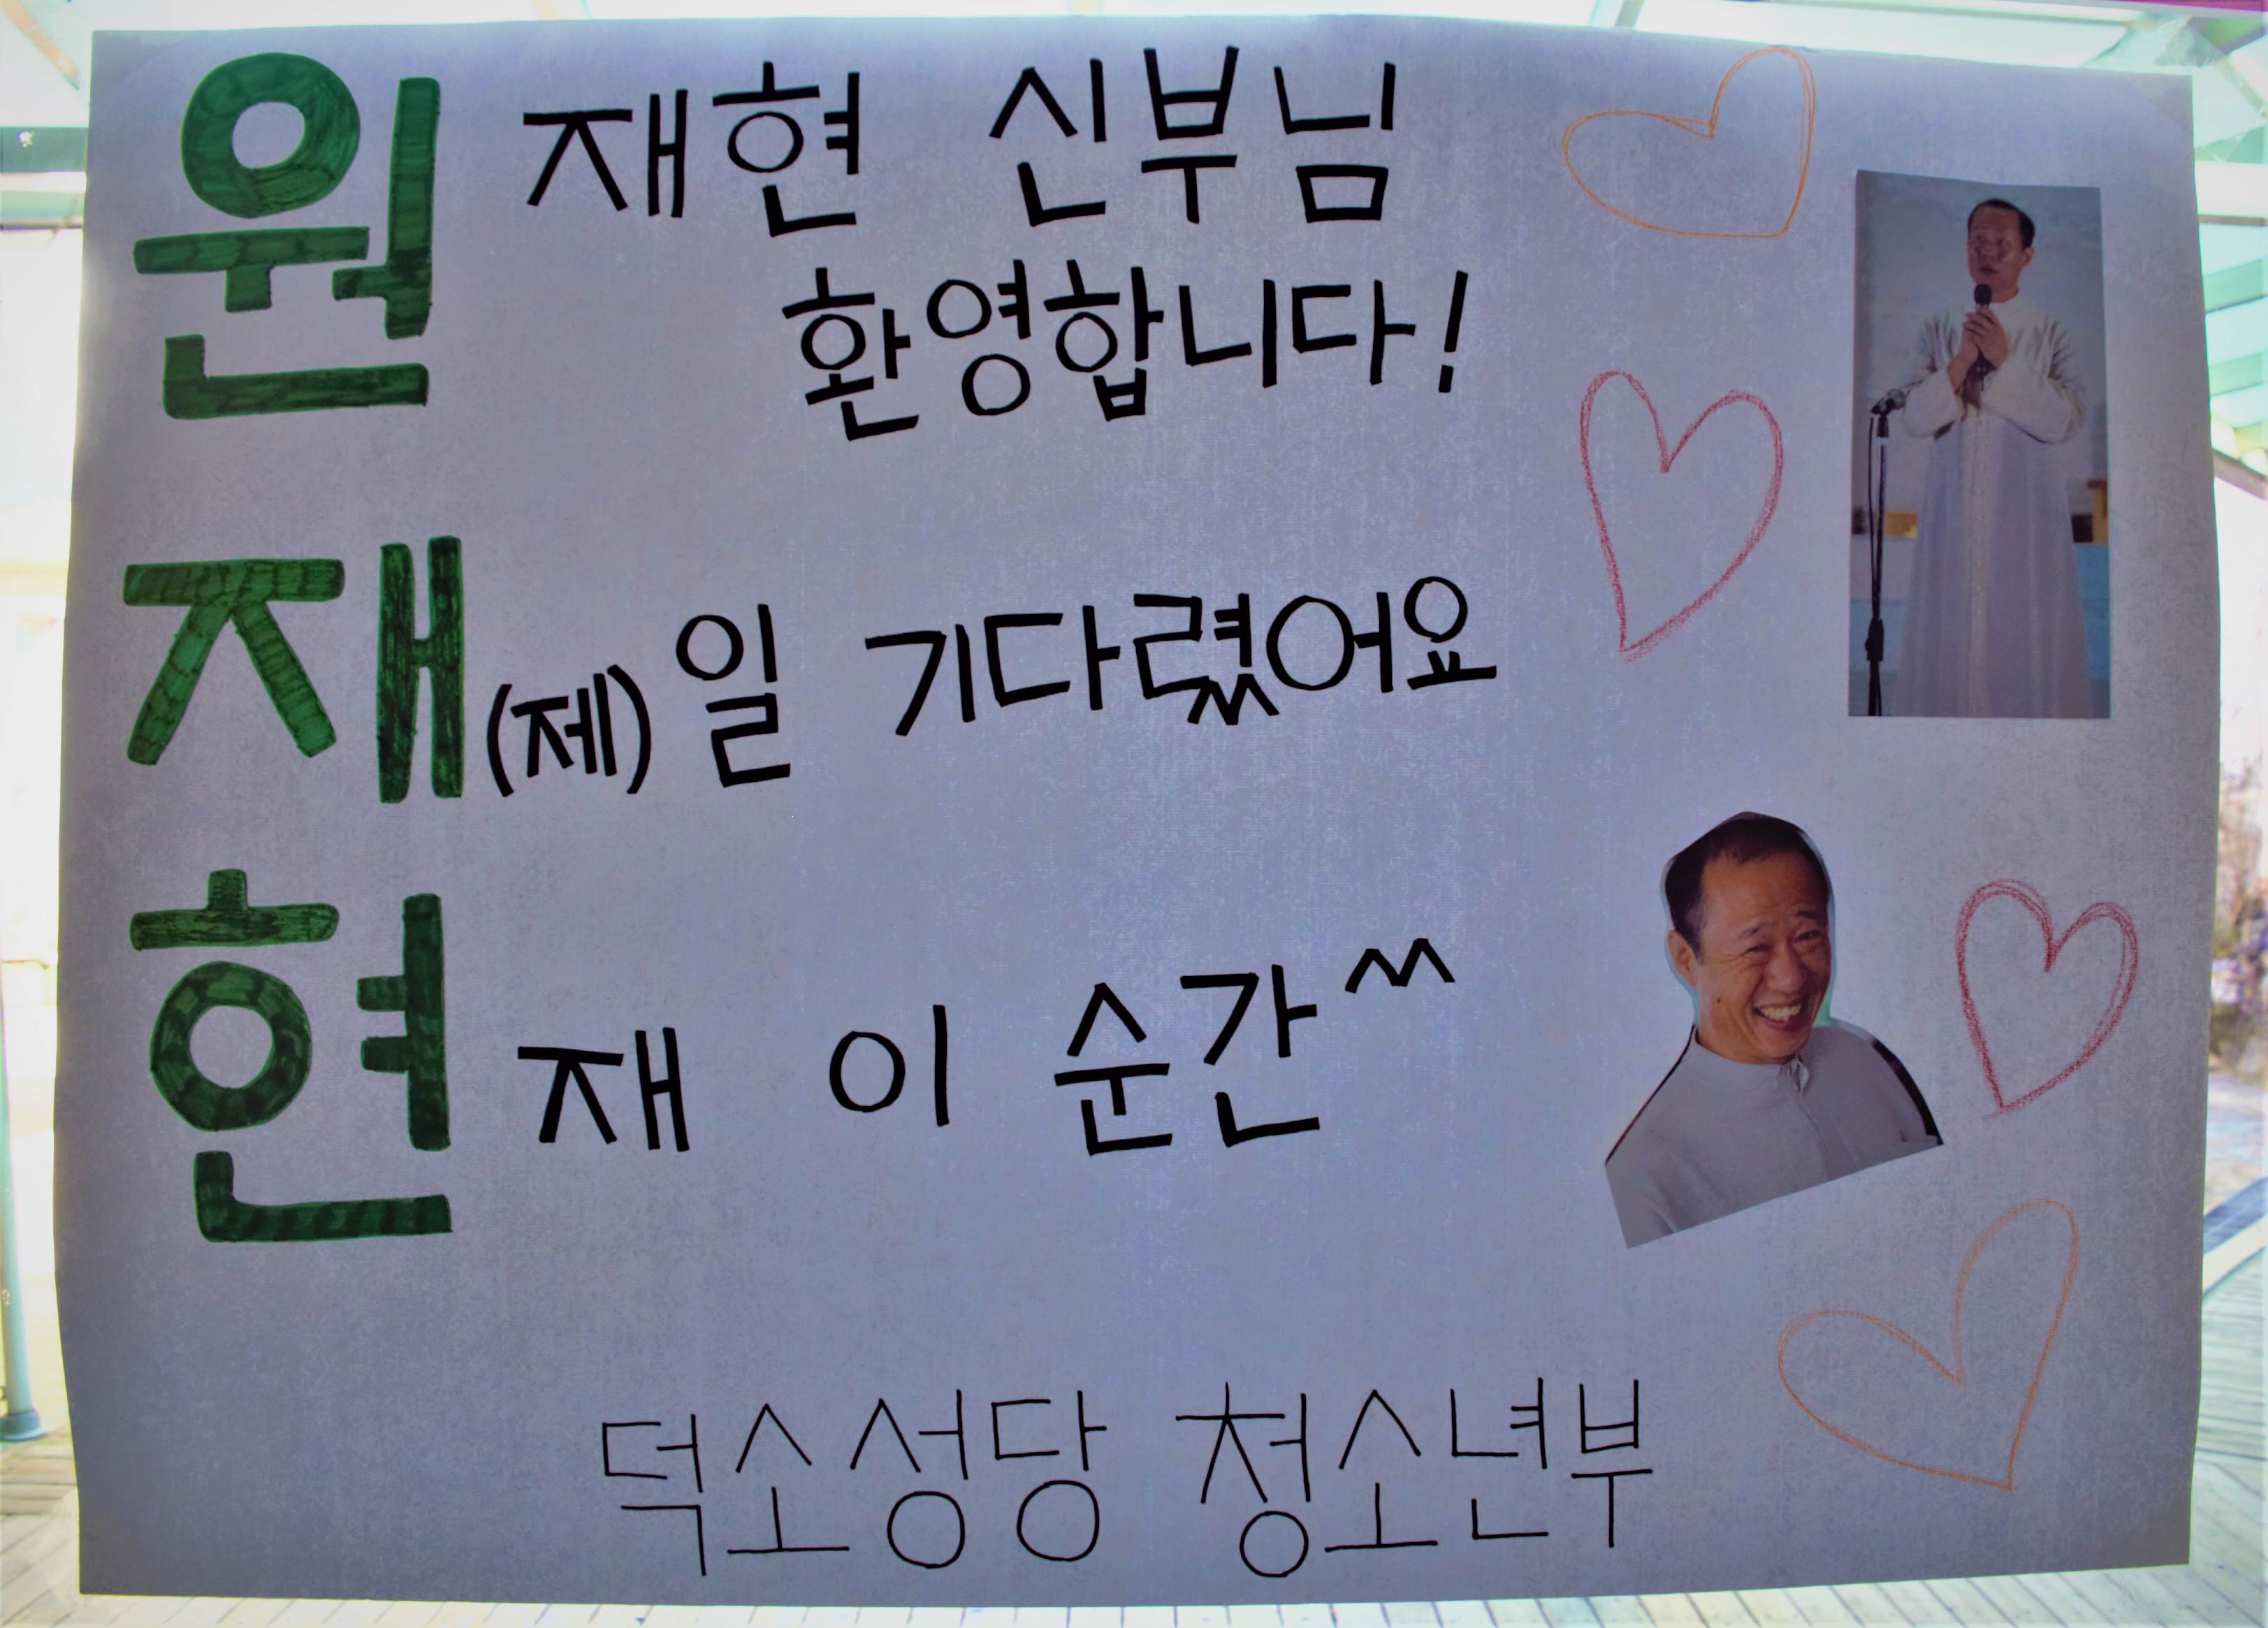 원재현 신부님
환영합니다!
재(제)일 기다렸어요
현재 이 순간^^
덕소성당 청소년부